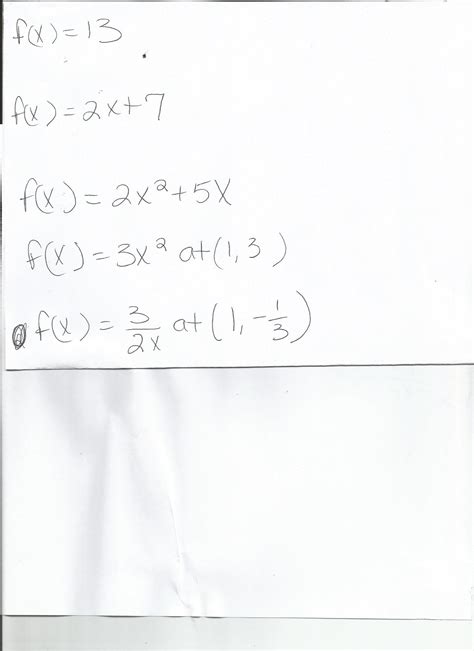 f(x) = 13
f(x) = 2x + 7
f(x) = 2x² + 5x
f(x) = 3x² at (1, 3)
f(x) = 3/2x at (1, -1/3)